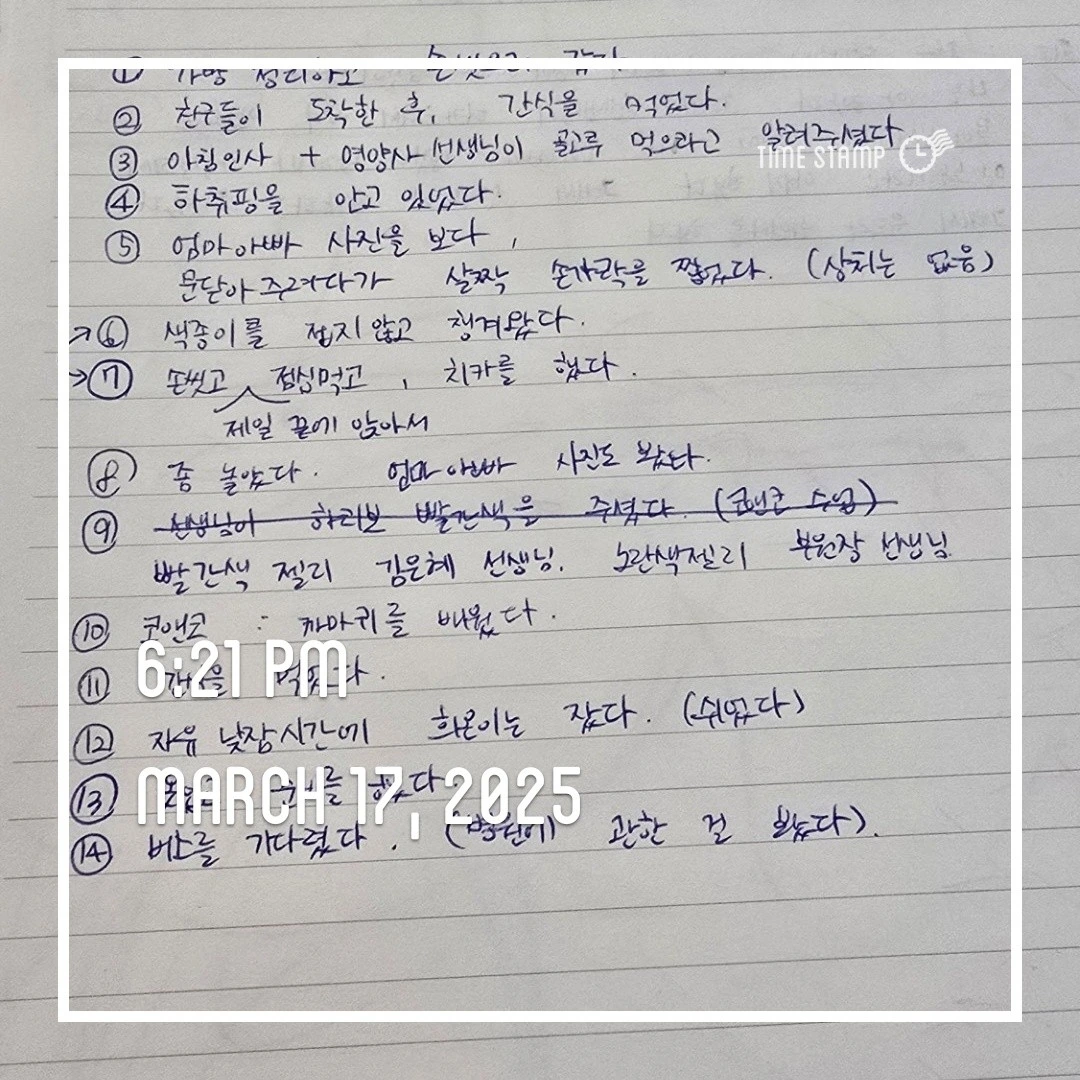 ① 가방 정리하고 손씻으러 갔다.
② 친구들이 도착한 후, 간식을 먹었다.
③ 아침인사 + 영양사 선생님이 골고루 먹으라고 알려주셨다
TIME STAMP
④ 하츄핑을 안고 있었다.
⑤ 엄마아빠 사진을 보다,
문닫아 주려다가 살짝 손가락을 찧었다. (상처는 없음)
→ ⑥ 색종이를 접지않고 챙겨왔다.
→ ⑦ 손씻고 점심먹고, 치카를 했다.
제일 끝에 앉아서
⑧ 좀 놀았다. 엄마아빠 사진도 봤다.
⑨ 선생님이 하리보 빨간색을 주셨다. (코앤코 수업)
빨간색 젤리 김은혜 선생님. 노란색젤리 부원장 선생님.
⑩ 코앤코 : 까마귀를 배웠다.
⑪ 간식을 먹었다.
6:21 PM
⑫ 자유 낮잠시간에 희온이는 잤다. (쉬었다)
⑬ 를 했다.
MARCH 17, 2025
⑭ 버스를 기다렸다. (병원에 관한 걸 봤다).